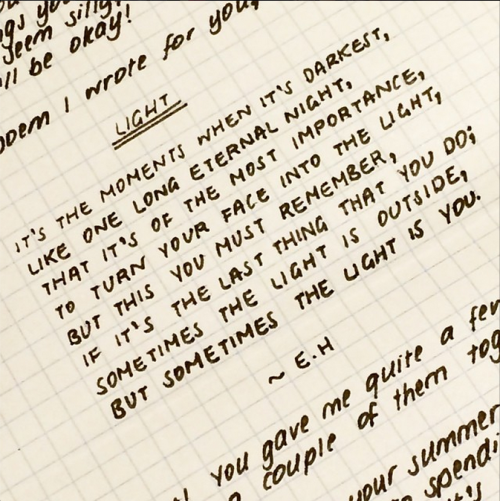 ngs you
seem silly
ll be okay!
poem I wrote for you,
LIGHT
IT'S THE MOMENTS WHEN IT'S DARKEST,
LIKE ONE LONG ETERNAL NIGHT,
THAT IT'S OF THE MOST IMPORTANCE,
TO TURN YOUR FACE INTO THE LIGHT,
BUT THIS YOU MUST REMEMBER,
IF IT'S THE LAST THING THAT YOU DO;
SOMETIMES THE LIGHT IS OUTSIDE,
BUT SOMETIMES THE LIGHT IS YOU.
~ E.H
you gave me quite a few
couple of them tog
your summer
spendi
it's